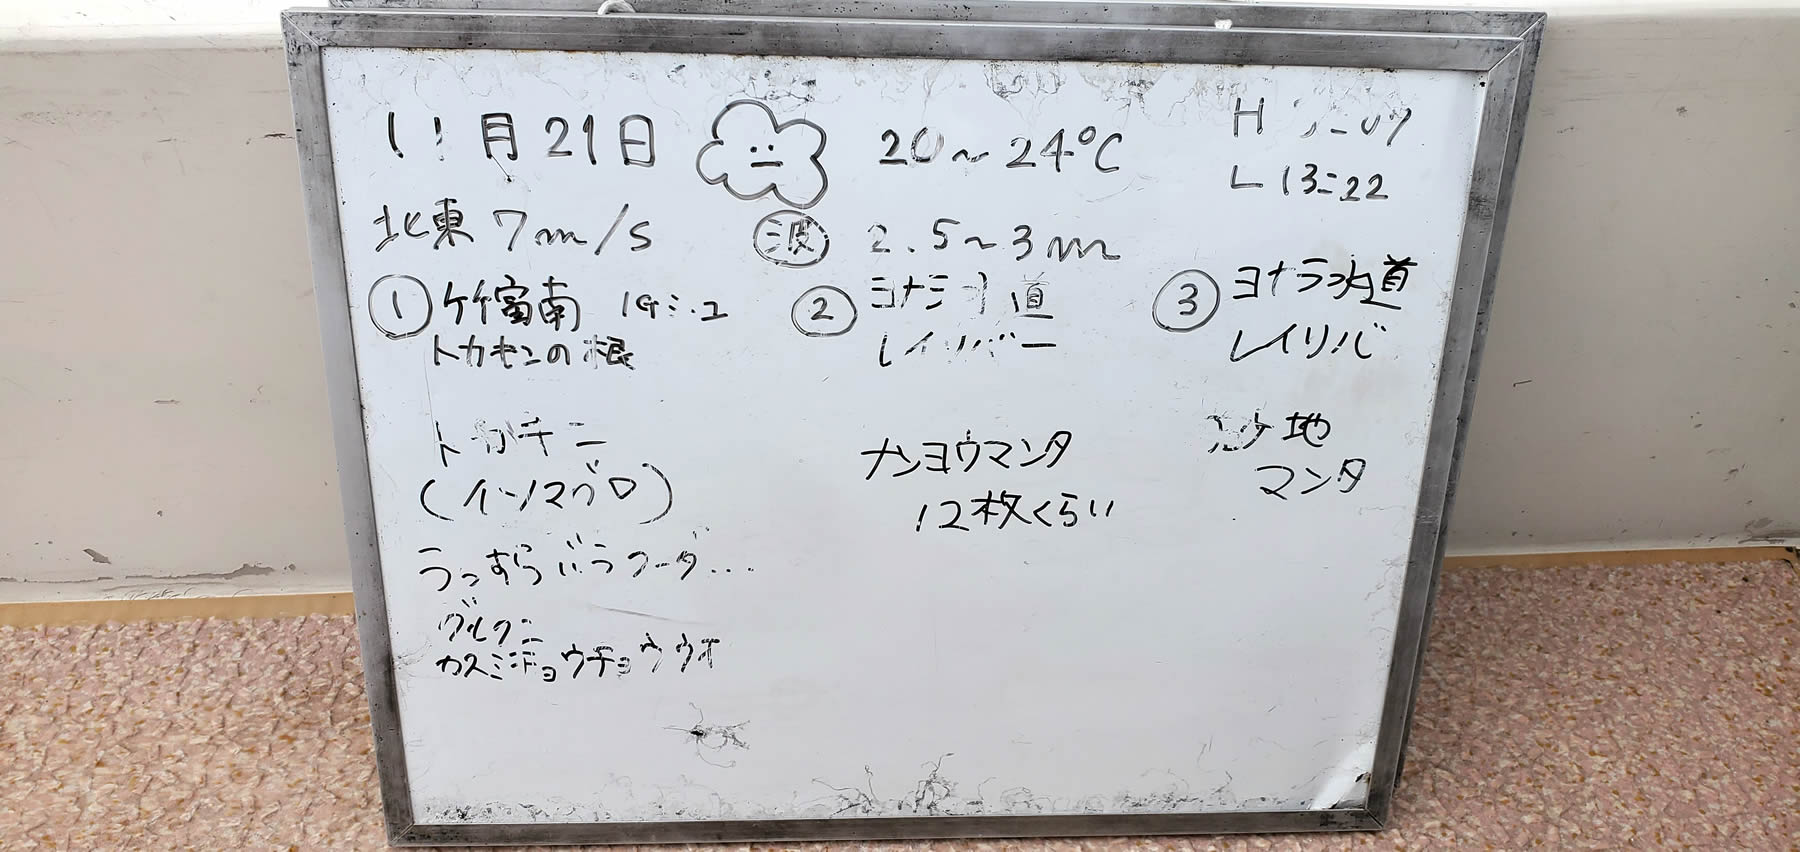 11月21日 20～24℃
H
L 13:22
北東 7m/s 波 2.5～3m
① 竹富南
トカキンの根
② ヨナラ水道
レイリバー
③ ヨナラ水道
レイリバ
トカキン
(イソマグロ)
うっすらバラクーダ...
グルクン
カスミチョウチョウウオ
ナンヨウマンタ
12枚くらい
砂地
マンタ